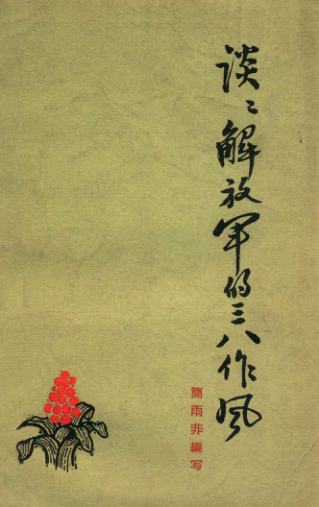 谈〻解放军的三八作风
简雨非编写